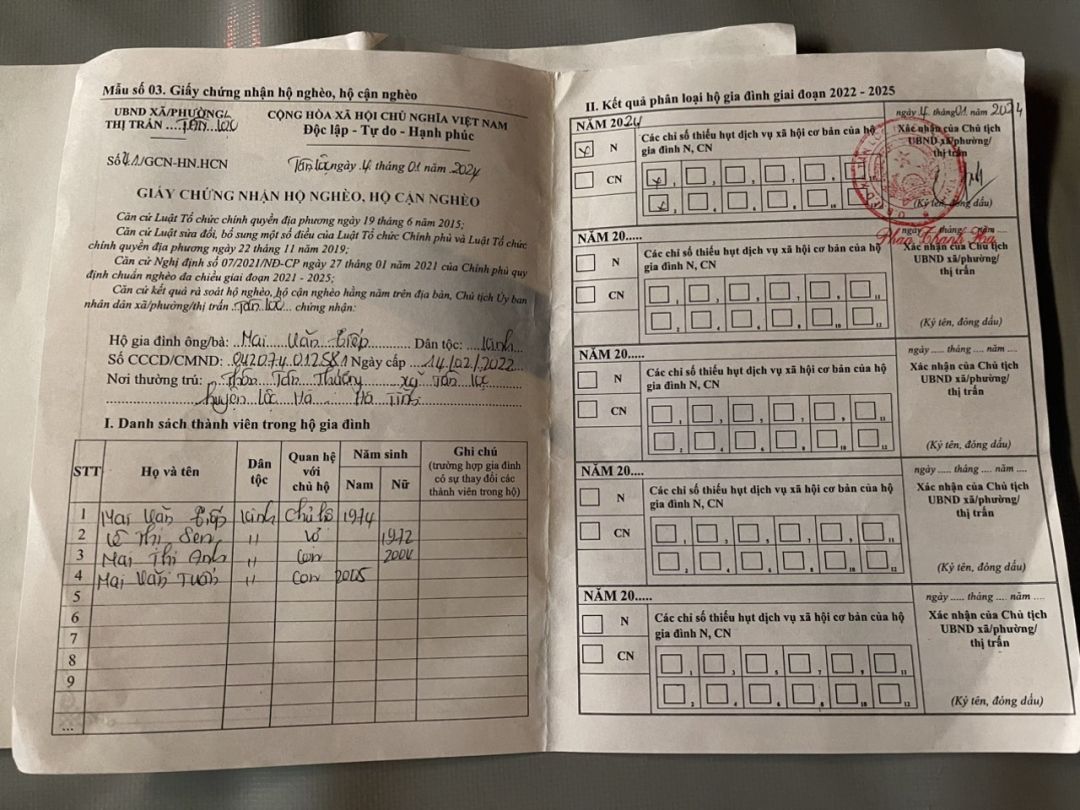 Mẫu số 03. Giấy chứng nhận hộ nghèo, hộ cận nghèo
UBND XÃ/PHƯỜNG/
THỊ TRẤN ....TÂN LỘC
CỘNG HÒA XÃ HỘI CHỦ NGHĨA VIỆT NAM
Độc lập - Tự do - Hạnh phúc
Số 41/GCN-HN.HCN
Tân Lộc ngày 4 tháng 01 năm 2024
GIẤY CHỨNG NHẬN HỘ NGHÈO, HỘ CẬN NGHÈO
Căn cứ Luật Tổ chức chính quyền địa phương ngày 19 tháng 6 năm 2015;
Căn cứ Luật sửa đổi, bổ sung một số điều của Luật Tổ chức Chính phủ và Luật Tổ chức
chính quyền địa phương ngày 22 tháng 11 năm 2019;
Căn cứ Nghị định số 07/2021/NĐ-CP ngày 27 tháng 01 năm 2021 của Chính phủ quy
định chuẩn nghèo đa chiều giai đoạn 2021 - 2025;
Căn cứ kết quả rà soát hộ nghèo, hộ cận nghèo hằng năm trên địa bàn, Chủ tịch Ủy ban
nhân dân xã/phường/thị trấn Tân Lộc chứng nhận:
Hộ gia đình ông/bà: Mai Văn Tiếp Dân tộc: Kinh
Số CCCD/CMND: 042074012581 Ngày cấp 14/02/2022
Nơi thường trú: Thôn Tân Thượng xã Tân Lộc
huyện Lộc Hà Hà Tĩnh
I. Danh sách thành viên trong hộ gia đình
STT Họ và tên Dân tộc Quan hệ với chủ hộ Năm sinh Nam Nữ Ghi chú (trường hợp gia đình có sự thay đổi các thành viên trong hộ)
1 Mai Văn Tiếp Kinh Chủ hộ 1974
2 Lê Thị Sen " Vợ 1972
3 Mai Thị Anh " Con 2004
4 Mai Văn Tuấn " Con 2005
5
6
7
8
9
...
II. Kết quả phân loại hộ gia đình giai đoạn 2022 - 2025
NĂM 2024
N
CN
Các chỉ số thiếu hụt dịch vụ xã hội cơ bản của hộ
gia đình N, CN
1 3 5 7 9
ngày 4 tháng 01 năm 2024
Xác nhận của Chủ tịch
UBND xã/phường/
thị trấn
(Ký tên, đóng dấu)
NĂM 20.....
N
CN
Các chỉ số thiếu hụt dịch vụ xã hội cơ bản của hộ
gia đình N, CN
1 3 5 7 9 11
2 4 6 8 10 12
ngày ..... tháng .... năm ....
Xác nhận của Chủ tịch
UBND xã/phường/
thị trấn
(Ký tên, đóng dấu)
NĂM 20.....
N
CN
Các chỉ số thiếu hụt dịch vụ xã hội cơ bản của hộ
gia đình N, CN
1 3 5 7 9 11
2 4 6 8 10 12
ngày ..... tháng .... năm ....
Xác nhận của Chủ tịch
UBND xã/phường/
thị trấn
(Ký tên, đóng dấu)
NĂM 20.....
N
CN
Các chỉ số thiếu hụt dịch vụ xã hội cơ bản của hộ
gia đình N, CN
1 3 5 7 9 11
2 4 6 8 10 12
ngày ..... tháng .... năm ....
Xác nhận của Chủ tịch
UBND xã/phường/
thị trấn
(Ký tên, đóng dấu)
NĂM 20.....
N
CN
Các chỉ số thiếu hụt dịch vụ xã hội cơ bản của hộ
gia đình N, CN
1 3 5 7 9 11
2 4 6 8 10 12
ngày ..... tháng .... năm ....
Xác nhận của Chủ tịch
UBND xã/phường/
thị trấn
(Ký tên, đóng dấu)